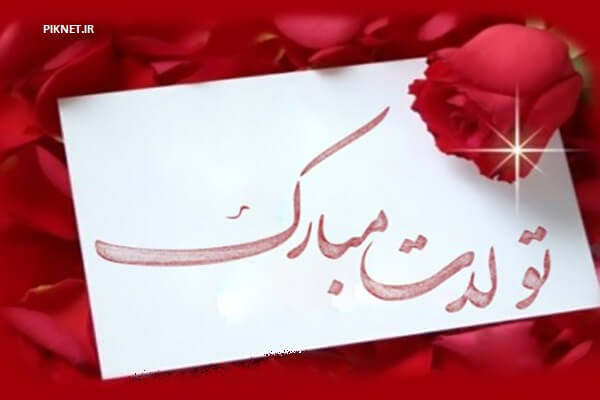 PIKNET.IR
تولدت مبارک